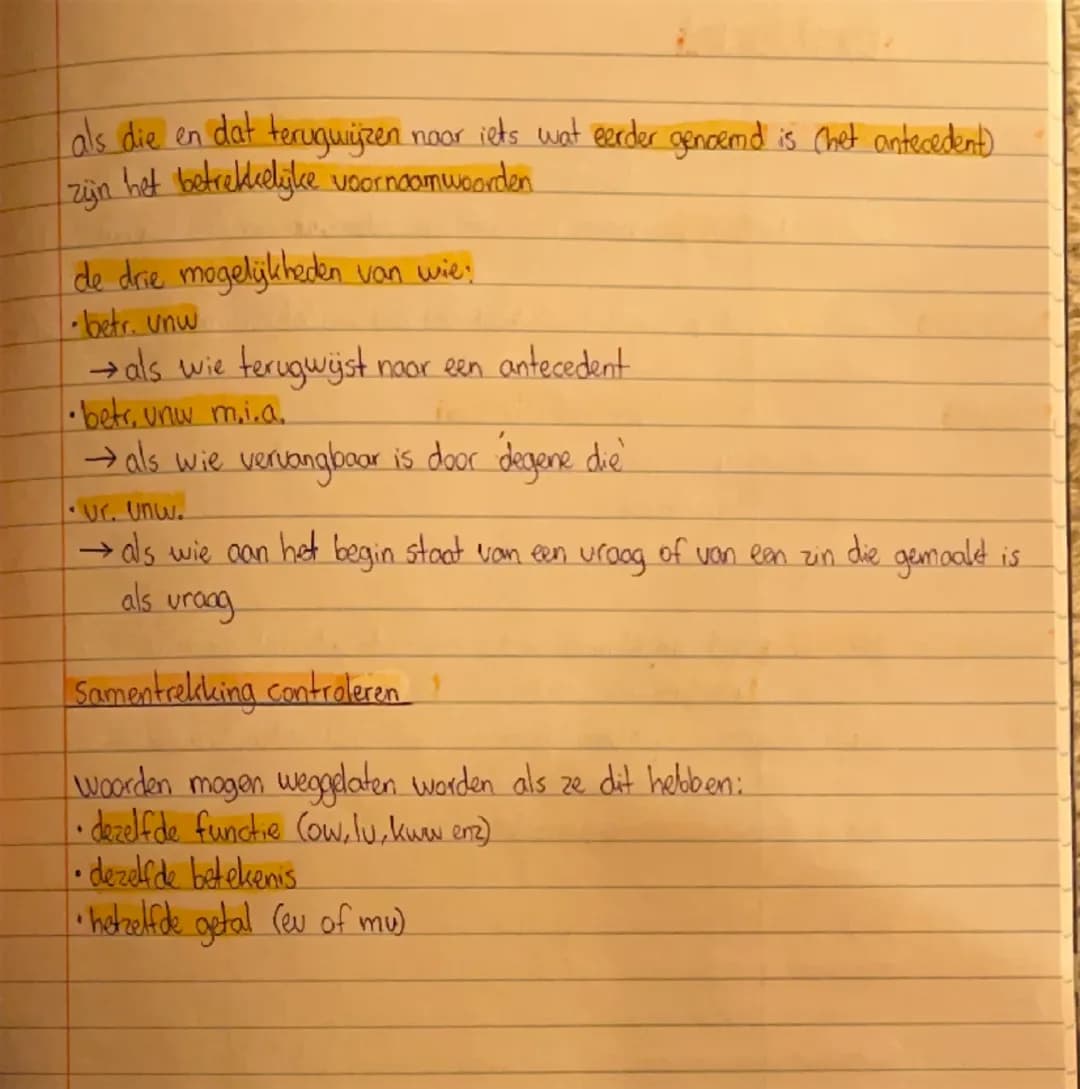 als die en dat terugwijzen naar iets wat eerder genoemd is (het antecedent)
zijn het betrekkelijke voornaamwoorden
de drie mogelijkheden van wie:
• betr. vnw
→ als wie terugwijst naar een antecedent
• betr. vnw m.i.a.
→ als wie vervangbaar is door 'degene die'
• vr. vnw.
→ als wie aan het begin staat van een vraag of van een zin die gemaakt is
als vraag
Samentrekking controleren
woorden mogen weggelaten worden als ze dit hebben:
• dezelfde functie (ow, lv, kww enz)
• dezelfde betekenis
• hetzelfde getal (ev of mv)